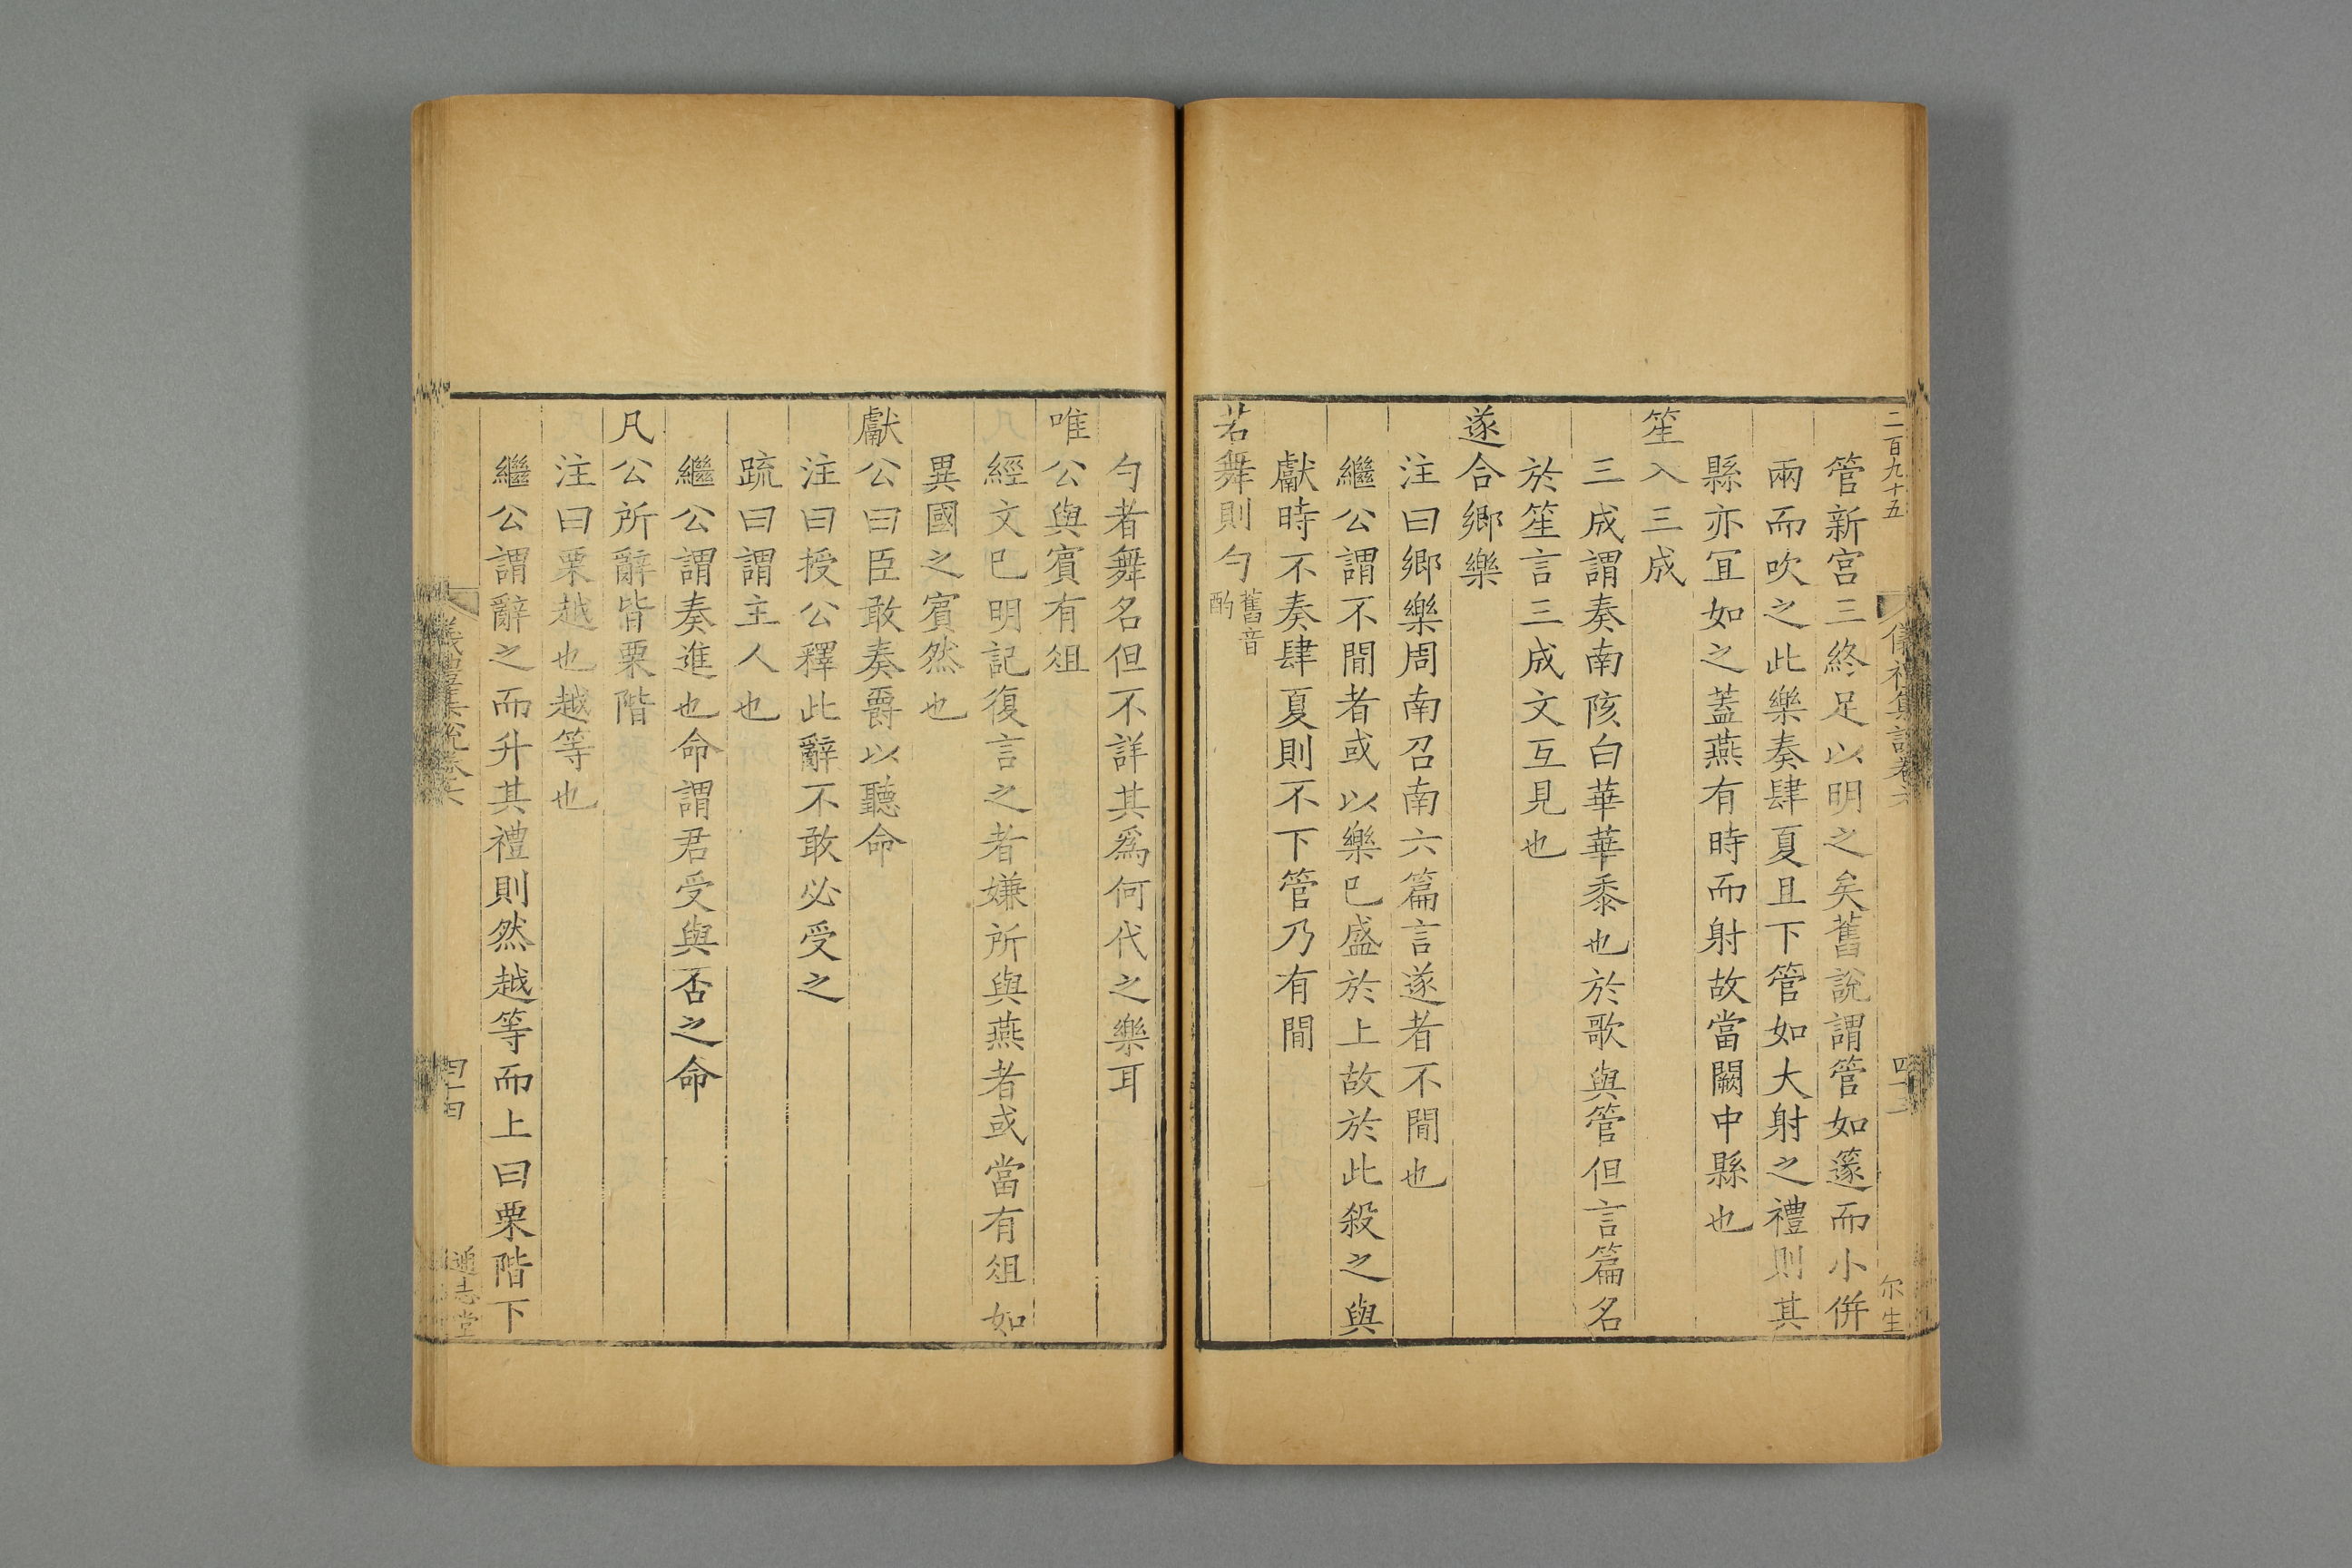 二百九十五
儀禮集說卷六
四十三
尔生
管新宫三終足以明之矣舊說謂管如篴而小併
兩而吹之此樂奏肆夏且下管如大射之禮則其
縣亦冝如之蓋燕有時而射故當闕中縣也
笙入三成
三成謂奏南陔白華華黍也於歌與管但言篇名
於笙言三成文互見也
遂合鄉樂
注曰鄉樂周南召南六篇言遂者不閒也
繼公謂不閒者或以樂巳盛於上故於此殺之與
獻時不奏肆夏則不下管乃有閒
若舞則勺舊音酌
勺者舞名但不詳其爲何代之樂耳
唯公與賓有俎
經文巳明記復言之者嫌所與燕者或當有俎如
異國之賓然也
獻公曰臣敢奏爵以聽命
注曰授公釋此辭不敢必受之
疏曰謂主人也
繼公謂奏進也命謂君受與否之命
凡公所辭皆栗階
注曰栗越也越等也
繼公謂辭之而升其禮則然越等而上曰栗階下
儀禮集說卷六
四十四
通志堂